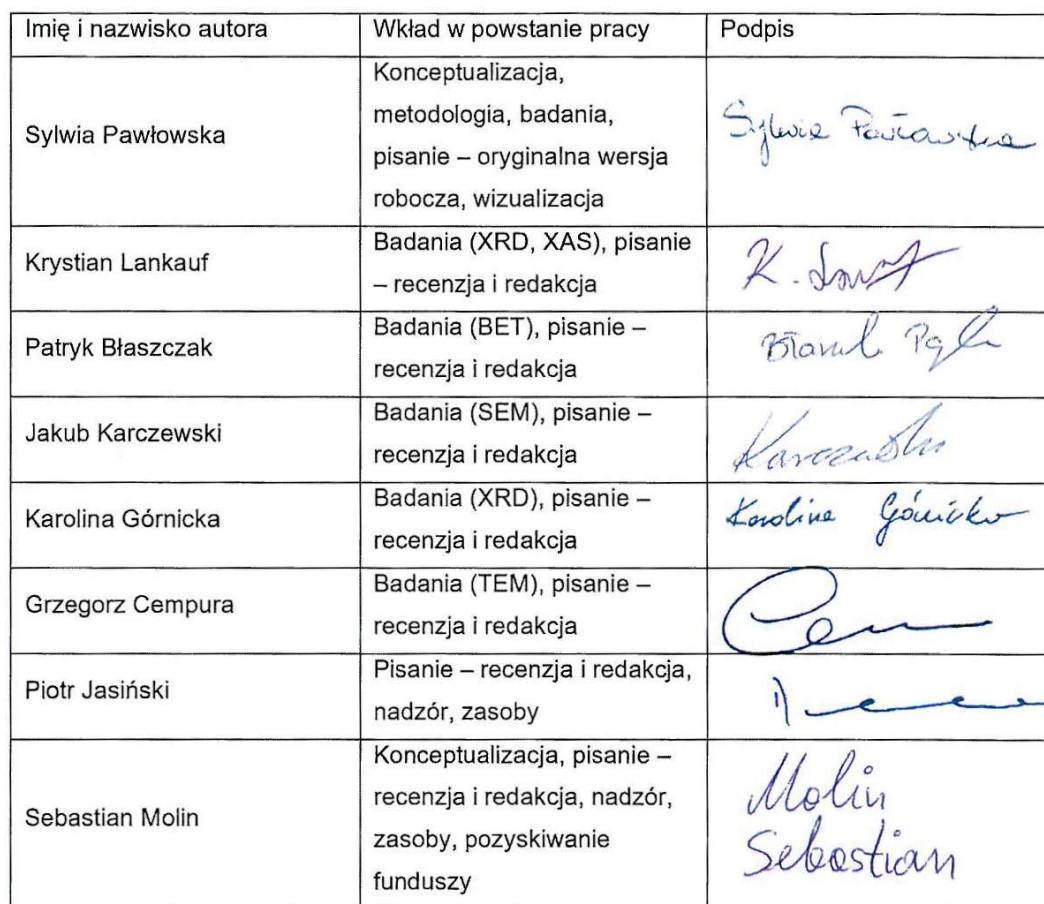 Imię i nazwisko autora
Wkład w powstanie pracy
Podpis
Sylwia Pawłowska
Konceptualizacja,
metodologia, badania,
pisanie – oryginalna wersja
robocza, wizualizacja
Sylwia Pawłowska
Krystian Lankauf
Badania (XRD, XAS), pisanie
– recenzja i redakcja
K.
Patryk Błaszczak
Badania (BET), pisanie –
recenzja i redakcja
Jakub Karczewski
Badania (SEM), pisanie –
recenzja i redakcja
Karczewski
Karolina Górnicka
Badania (XRD), pisanie –
recenzja i redakcja
Karolina Górnicka
Grzegorz Cempura
Badania (TEM), pisanie –
recenzja i redakcja
Piotr Jasiński
Pisanie – recenzja i redakcja,
nadzór, zasoby
Sebastian Molin
Konceptualizacja, pisanie –
recenzja i redakcja, nadzór,
zasoby, pozyskiwanie
funduszy
Molin
Sebastian